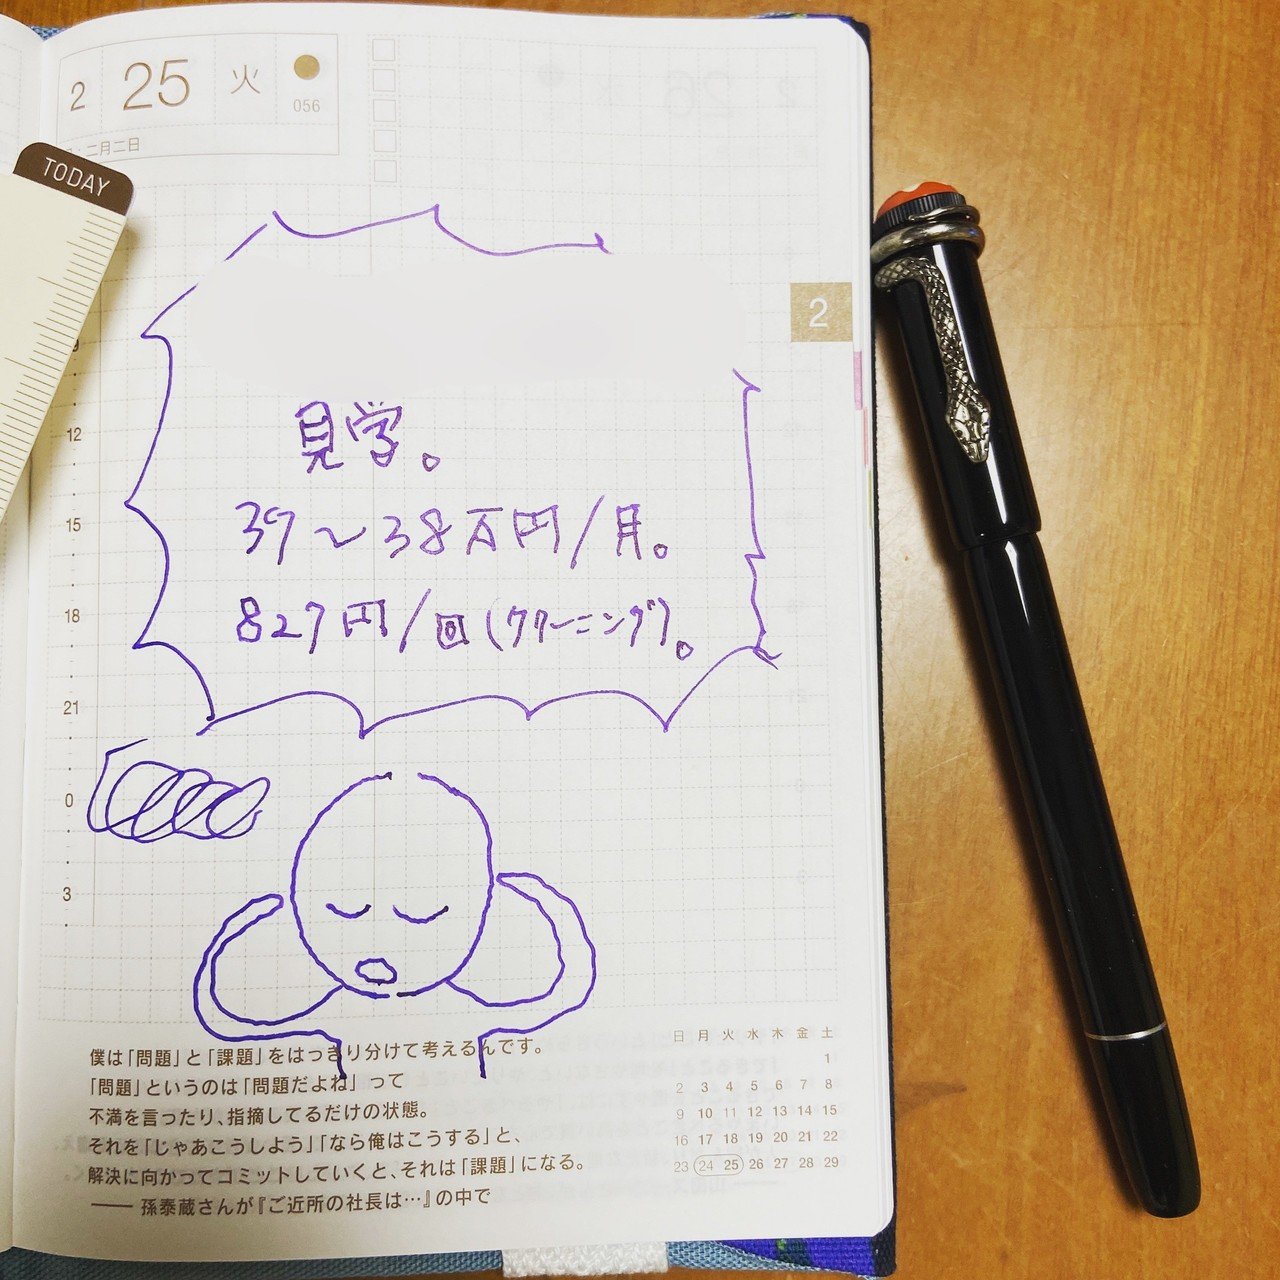 2 25 火 056
二月二日
TODAY
2
9
見学。
12
39〜38万円/月。
15
827円/回(クリーニング)。
18
21
0
3
僕は「問題」と「課題」をはっきり分けて考えるんです。
「問題」というのは「問題だよね」って
不満を言ったり、指摘してるだけの状態。
それを「じゃあこうしよう」「なら俺はこうする」と、
解決に向かってコミットしていくと、それは「課題」になる。
—— 孫泰蔵さんが『ご近所の社長は…』の中で
日 月 火 水 木 金 土
1
2 3 4 5 6 7 8
9 10 11 12 13 14 15
16 17 18 19 20 21 22
23 24 25 26 27 28 29